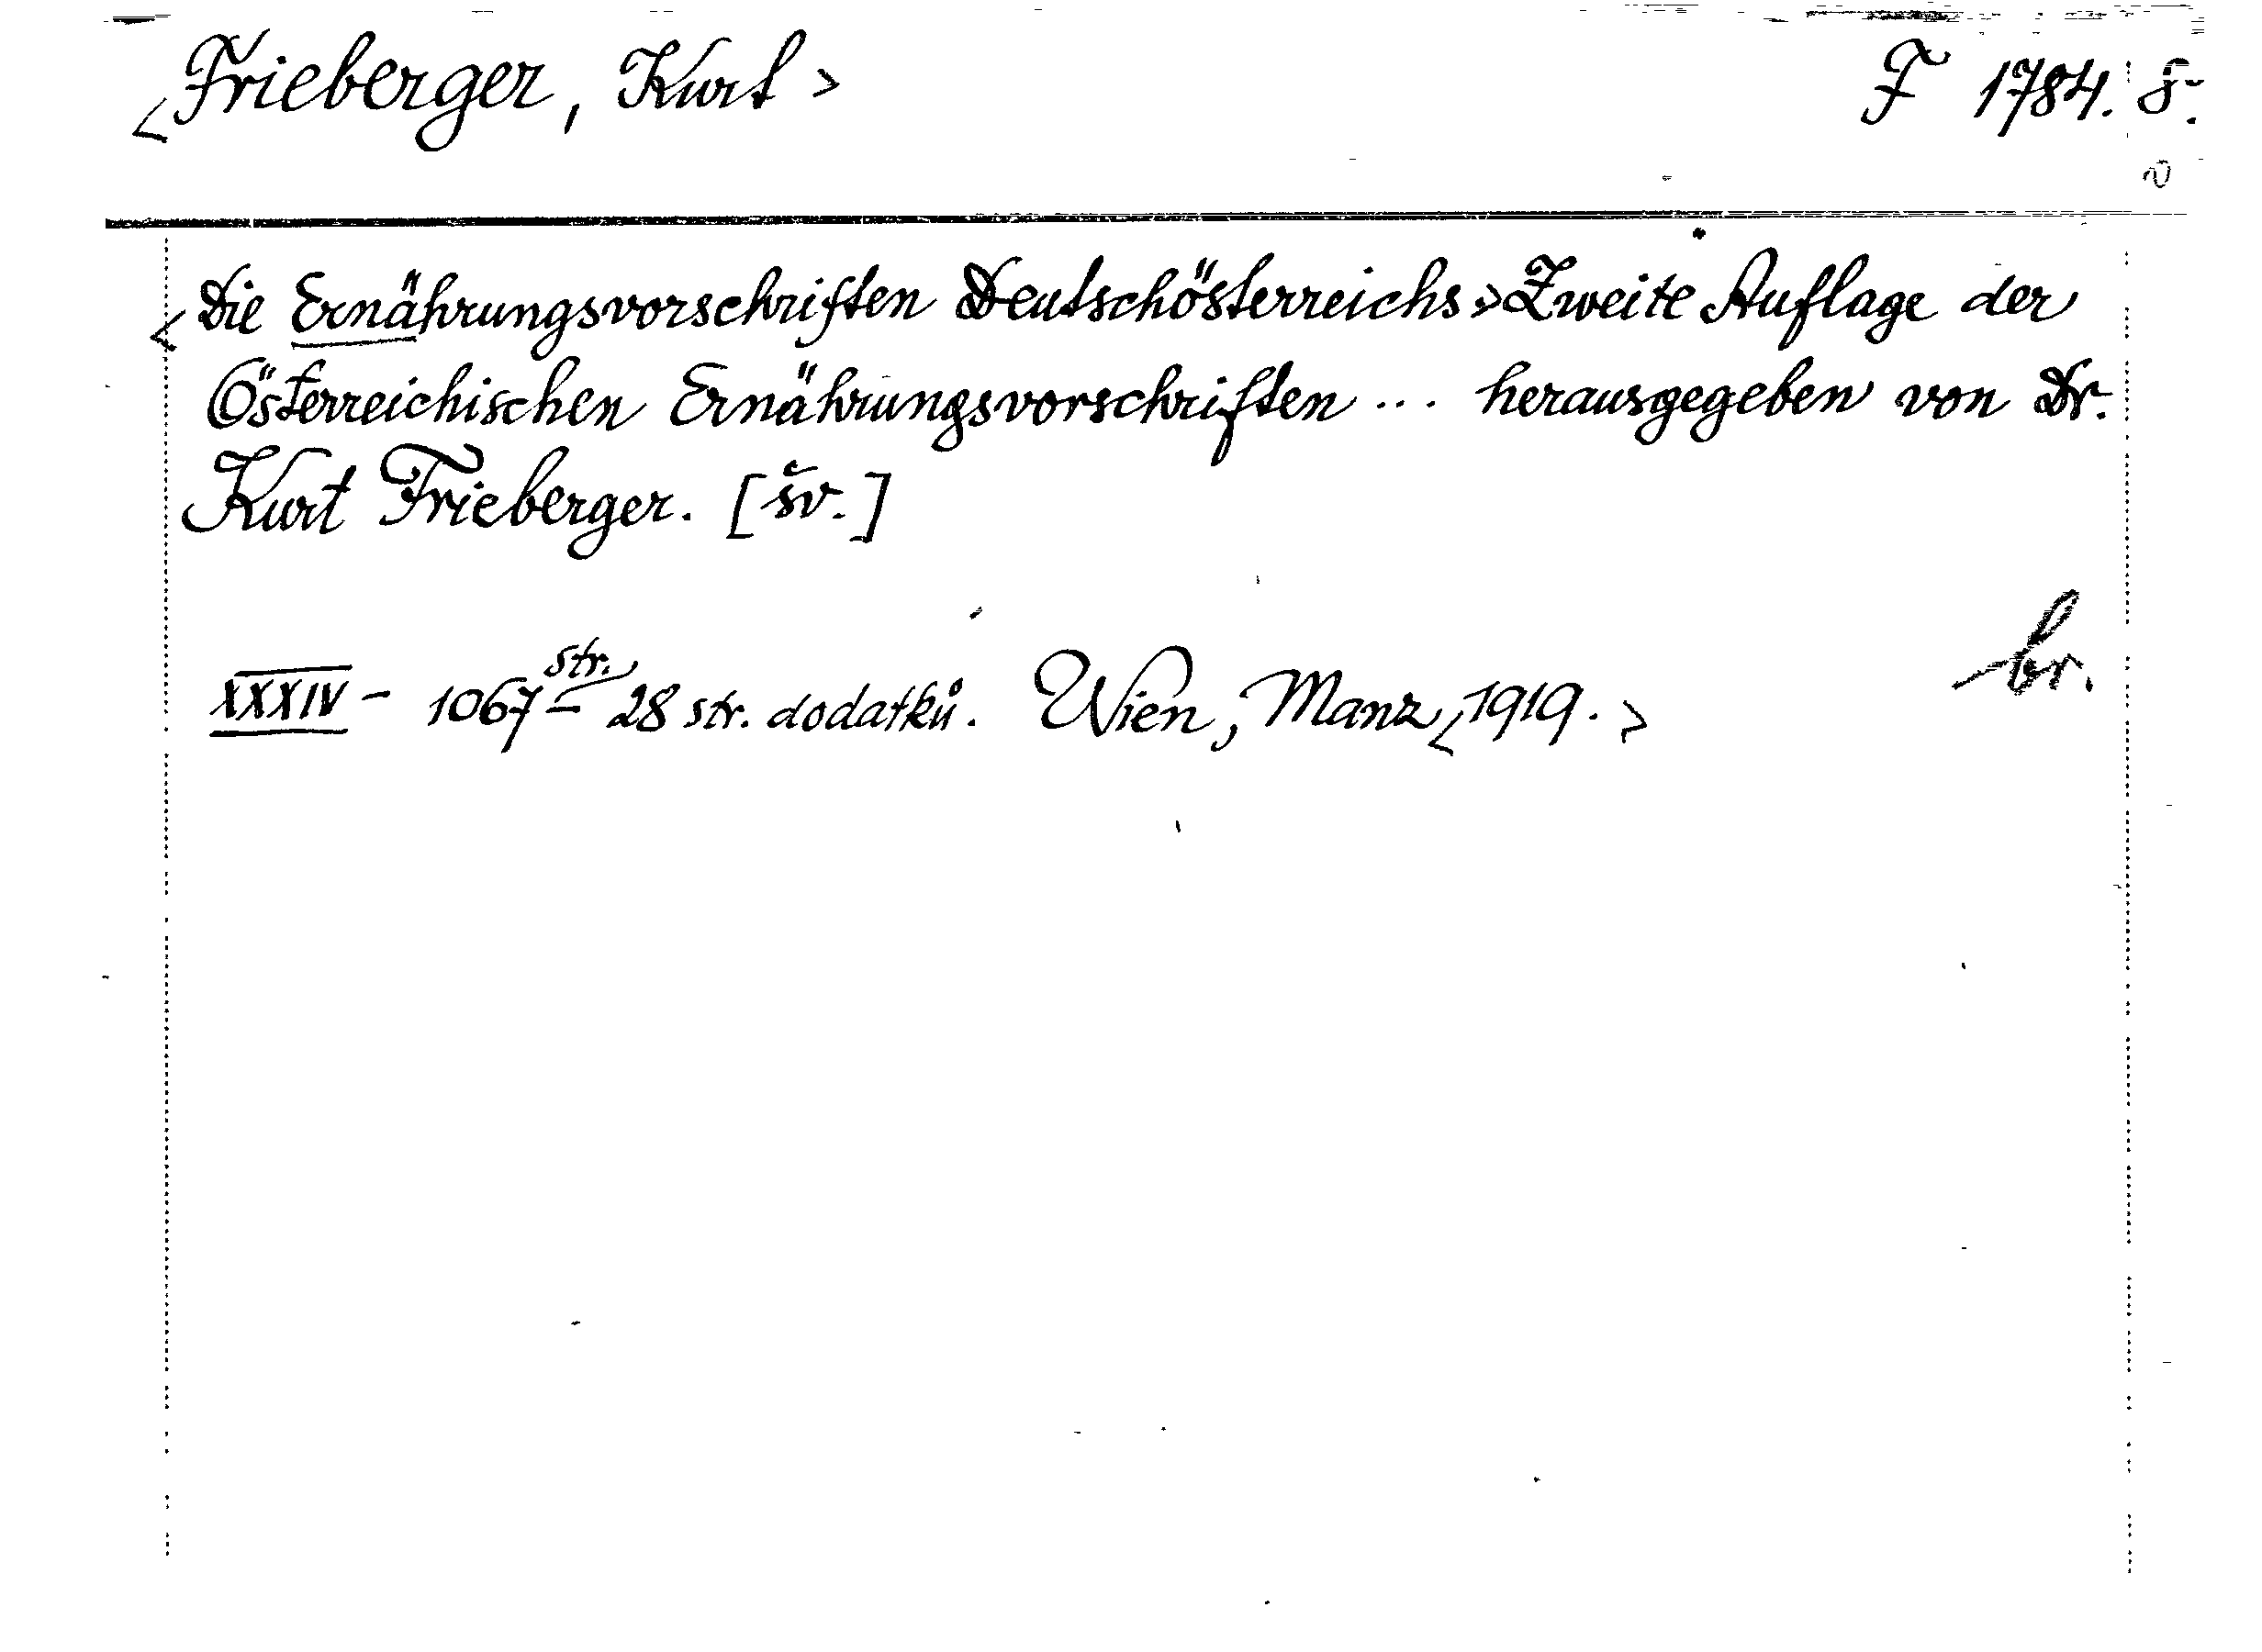 <Frieberger, Kurt> F 1784. 8.
<Die Ernährungsvorschriften Deutschösterreichs.> Zweite Auflage der
Österreichischen Ernährungsvorschriften ... herausgegeben von Dr.
Kurt Frieberger. [šv.]
br.
XXXIV - 1067 str. - 28 str. dodatků. Wien, Manz <1919.>